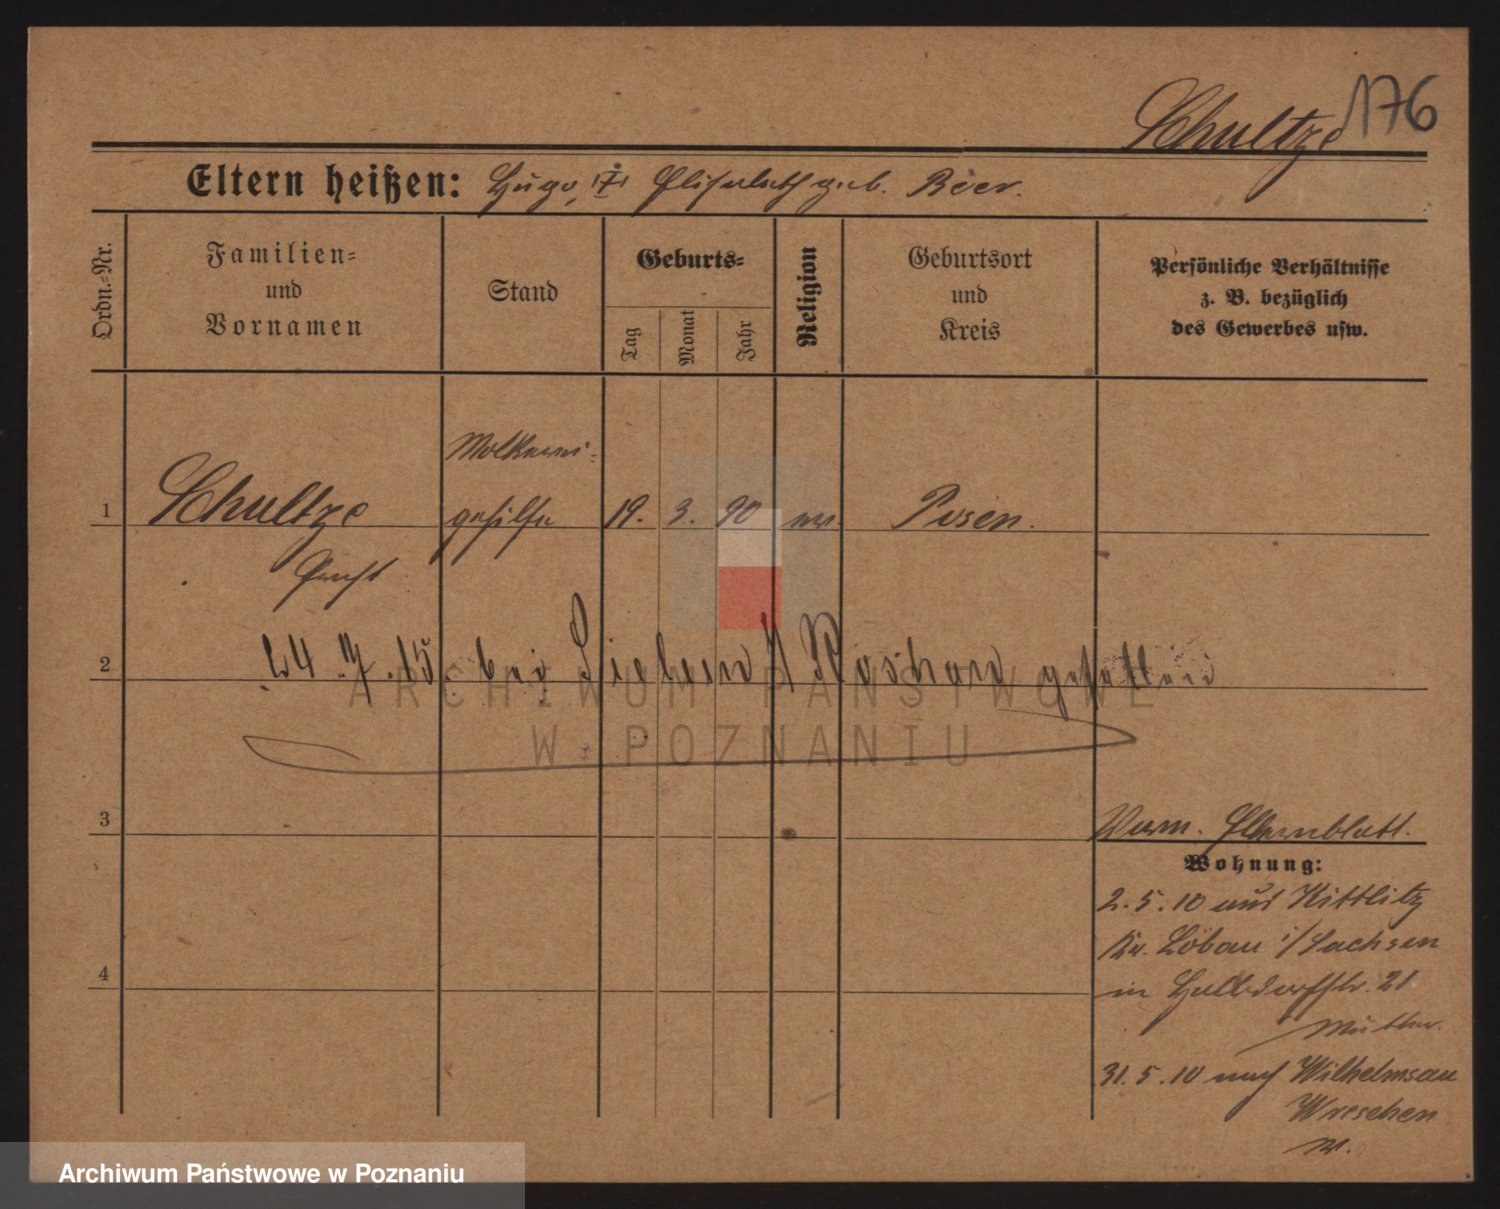 Schultze 176
Eltern heißen: Hugo, Elisabeth geb. Beer.
Ordn.-Nr.
Familien-
und
Vornamen
Stand
Geburts-
Tag
Monat
Jahr
Religion
Geburtsort
und
Kreis
Persönliche Verhältnisse
z. B. bezüglich
des Gewerbes usw.
Molkerei-
1 Schultze gehilfe 19. 3. 90 ev. Posen.
Ernst
2 24.7.15. bei gefallen
ARCHIWUM PAŃSTWOWE
W POZNANIU
3
Elternblatt.
Wohnung:
2.5.10 aus Kittlitz
Kr. Löbau i/Sachsen
4
in 21
Mutter.
31.5.10 nach Wilhelmsau
Wreschen
Archiwum Państwowe w Poznaniu